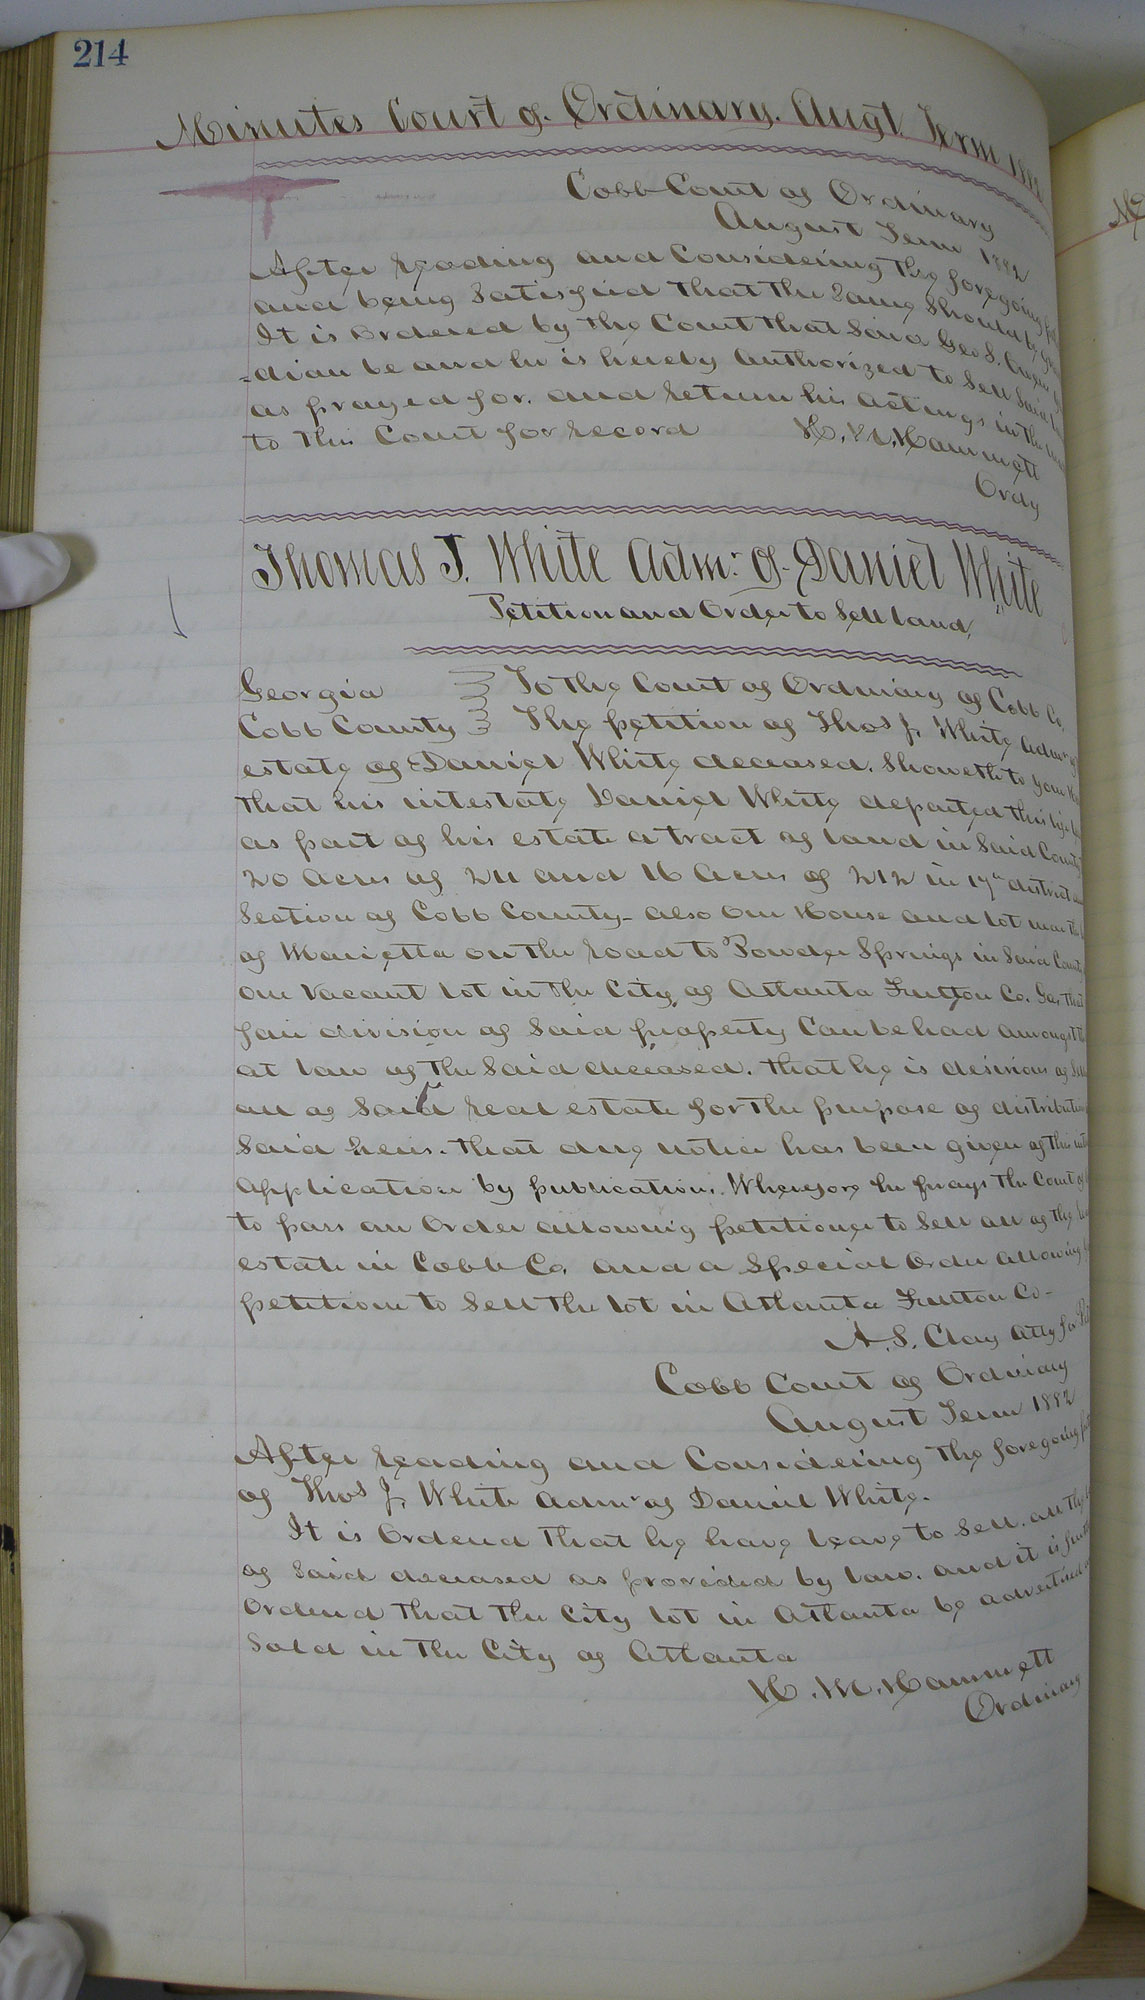 214
Minutes Court of Ordinary. Augt. Term 1882
Cobb Court of Ordinary
August Term 1882
After reading and Considering the foregoing
and being Satisfied that the Same Should be
It is Ordered by the Court that Said Geo S. Owen
-dian be and he is hereby Authorized to Sell Said
as prayed for. and return his actings in the
to this Court for record H. M. Hammett
Ordy
Thomas J. White Admr. of Daniel White
Petition and Order to Sell land
Georgia To the Court of Ordinary of Cobb Co.
Cobb County The petition of Thos J. White Admr of
estate of Daniel White deceased. Showeth to your
that his intestate Daniel White departed this life
as part of his estate a tract of land in Said County
20 Acres of 211 and 16 Acres of 212 in 17th district
Section of Cobb County- also One House and lot near the
of Marietta on the road to Powder Springs in Said County
One Vacant lot in the City of Atlanta Fulton Co. Ga, that
fair division of Said property Can be had amongst the
at law of the Said deceased. that he is desirous of
all of Said real estate for the purpose of distribution
Said heirs. that due notice has been given of this
application by publication. Wherefore he prays the Court
to pass an Order allowing petitioner to Sell all of the
estate in Cobb Co. and a Special Order allowing
petitioner to Sell the lot in Atlanta Fulton Co-
A. S. Clay Atty for
Cobb Court of Ordinary
August Term 1882
After reading and Considering the foregoing
of Thos J. White Admr of Daniel White.
It is Ordered that he have leave to Sell. all the
of Said deceased as provided by law. and it is
Ordered that the City lot in Atlanta be advertised
Sold in the City of Atlanta
H. M. Hammett
Ordinary